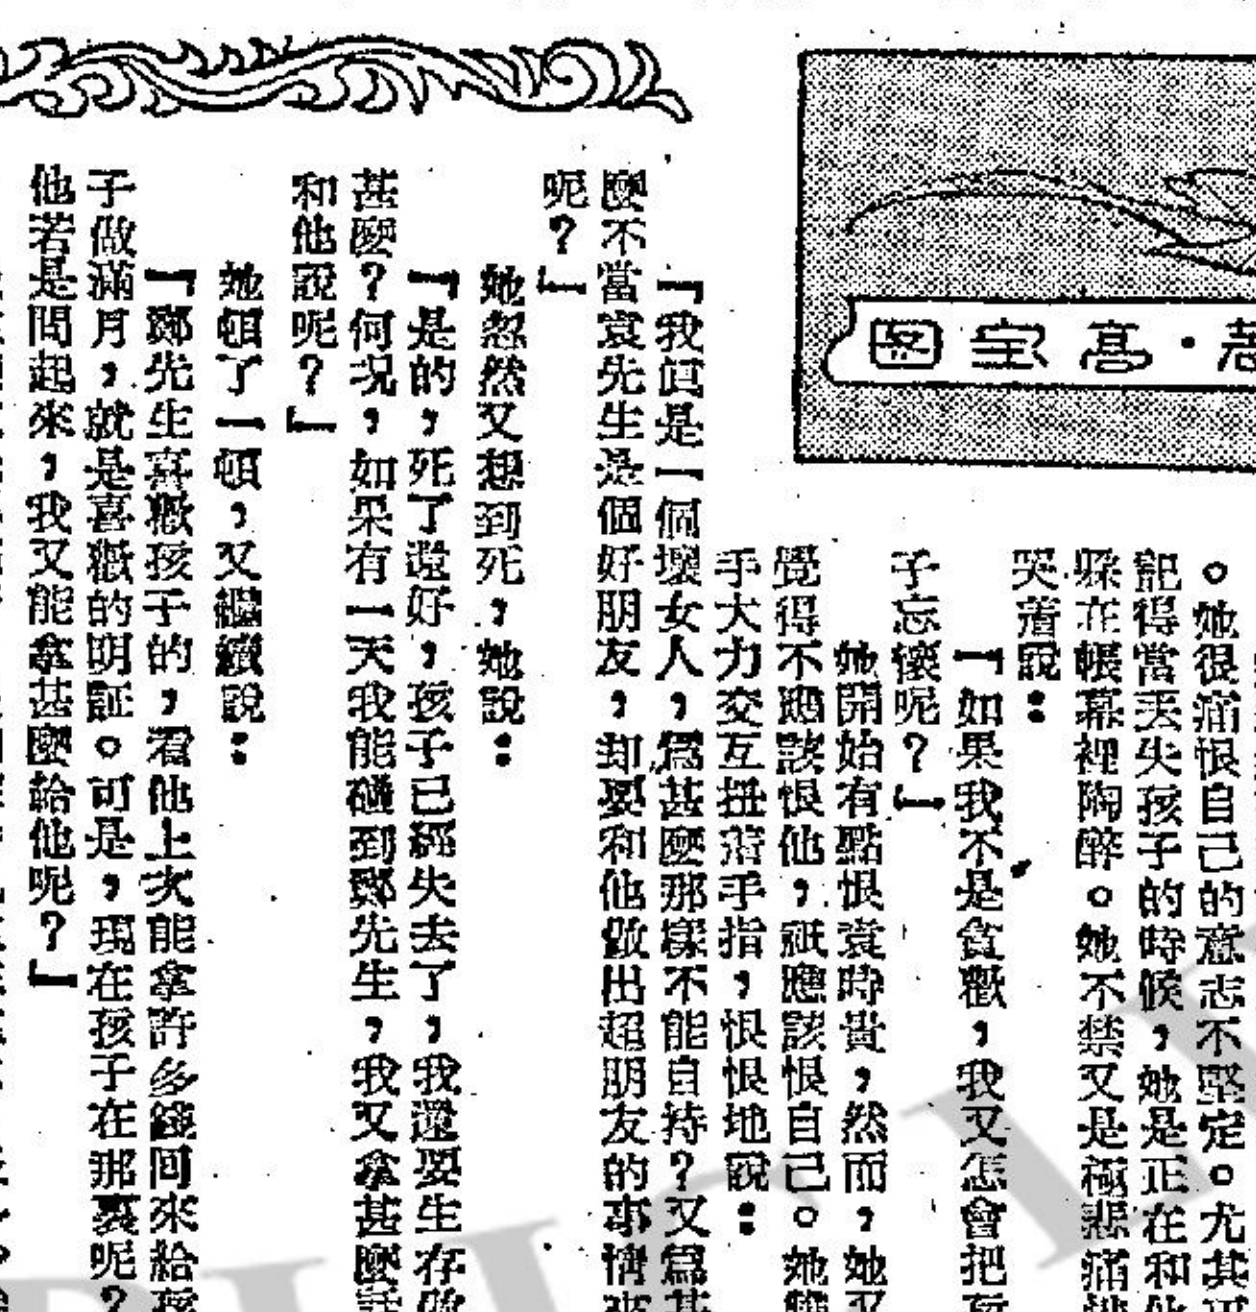 高宝·著
。她很痛恨自己的意志不堅定。尤其
記得當丟失孩子的時候，她是正在和
躲在帳幕裡陶醉。她不禁又是極悲痛
哭着說：
『如果我不是貪歡，我又怎會把孩
子忘懷呢？』
她開始有點恨袁時貴，然而，她又
覺得不應該恨他，祇應該恨自己。她
手大力交互扭着手指，恨恨地說：
『我眞是一個壞女人，爲甚麼那樣不能自持？又爲甚
麼不當袁先生是個好朋友，却要和他做出超朋友的事情來
呢？』
她忽然又想到死，她說：
『是的，死了還好，孩子已經失去了，我還要生存做
甚麼？何況，如果有一天我能碰到鄭先生，我又拿甚麼話
和他說呢？』
她頓了一頓，又繼續說：
『鄭先生喜歡孩子的，看他上次能拿許多錢回來給孩
子做滿月，就是喜歡的明証。可是，現在孩子在那裏呢？
他若是問起來，我又能拿甚麼給他呢？』